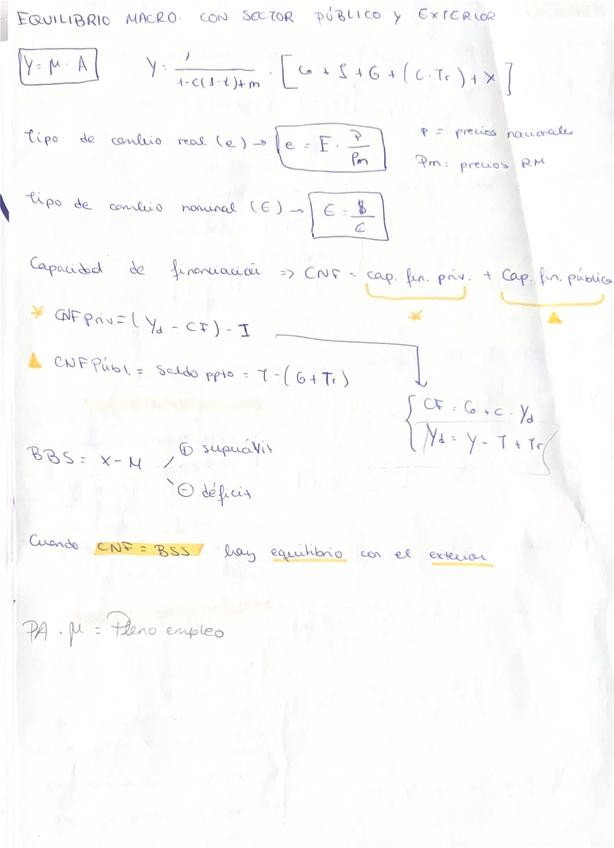 EQUILIBRIO MACRO. CON SECTOR PÚBLICO Y EXTERIOR
Y = μ · A Y = 1 / 1-c(1-t)+m · [Co + I + G + (C·Tr) + X]
Tipo de cambio real (e) → e = E · P / Pm P = precios nacionales
Pm = precios RM
Tipo de cambio nominal (E) → E = $ / €
Capacidad de financiación => CNF = cap. fin. priv. + Cap. fin. pública
CNFpriv = (Yd - CF) - I
CNFPúbl. = Saldo ppto = T - (G + Tr)
CF = Co + c · Yd
Yd = Y - T + Tr
BBS = X - M + superávit
- déficit
Cuando CNF = BSS hay equilibrio con el exterior
PA · μ = Pleno empleo